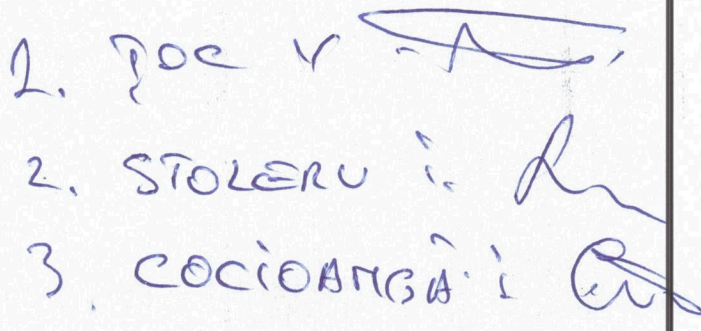 1. ȚOC V
2. STOLERU I.
3. COCIOANGĂ I